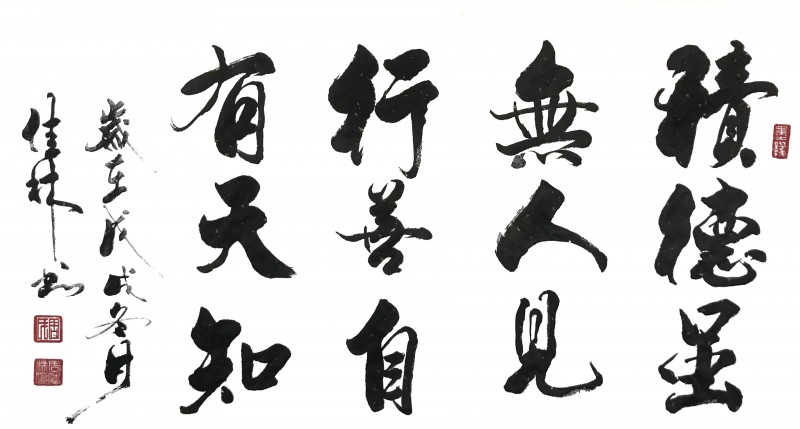 積德虽
無人見
行善自
有天知
歲在戊戌冬月
佳林书